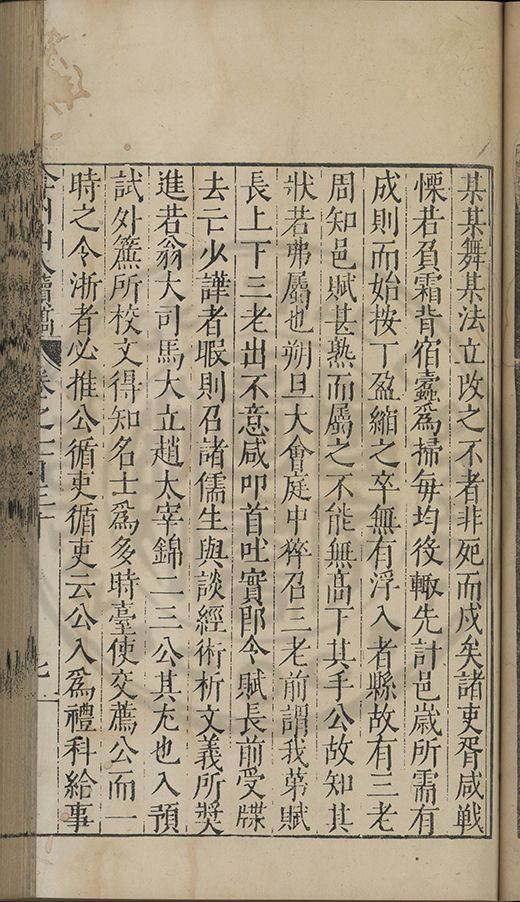 某某舞某法立改之不者非死而戍矣諸吏胥咸戰
慄若負霜背宿蠹爲掃毎均役輙先計邑嵗所需有
成則而始按丁盈縮之卒無有浮入者縣故有三老
周知邑賦甚熟而屬之不能無髙下其手公故知其
狀若弗屬也朔旦大會庭中猝召三老前謂我第賦
長上下三老出不意咸叩首吐實即令賦長前受牒
去亡少譁者暇則召諸儒生與談經術析文義所奬
進若翁大司馬大立趙太宰錦二三公其尤也入預
試外簾所校文得知名士爲多時臺使交薦公而一
時之令浙者必推公循吏循吏云公入爲禮科給事
弇州山人續稿 卷之一百三十 七